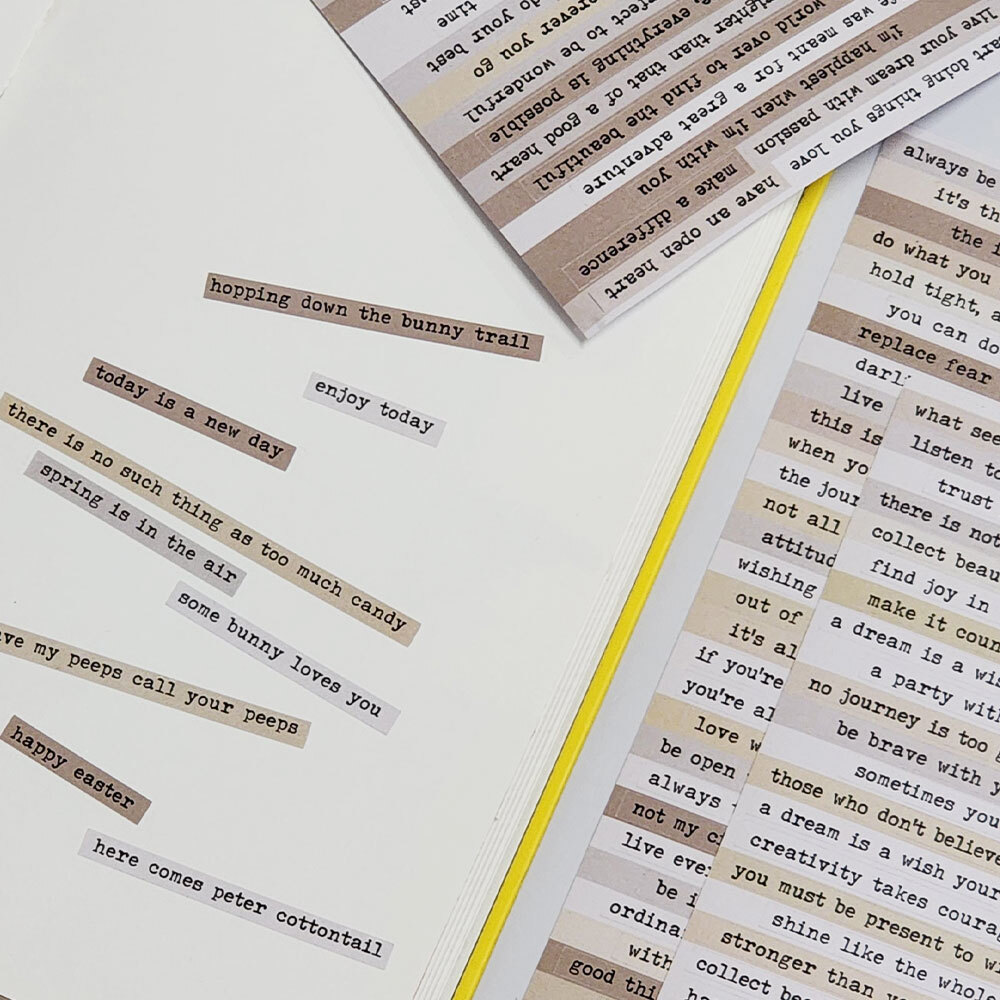 hopping down the bunny trail
today is a new day
enjoy today
there is no such thing as too much candy
spring is in the air
some bunny loves you
my peeps call your peeps
happy easter
here comes peter cottontail
have an open heart
make a difference
doing things you love
with you
live your dream with passion
i'm happiest when i'm
was meant for a great adventure
world over to find the beautiful
than that of a good heart
everything is possible
to be wonderful
you go
do your best
time
just
always be
it's
the
do what you
hold tight,
you can do
replace fear
live
this is
when
the
not all
wishing
out of
it's
if you're
you're
love
be open
always
not my
live
be
with
good
what
listen
trust
there is
collect
find joy in
make it
a dream is a
a party
no journey is too
be brave with
sometimes you
those who don't believe
a dream is a wish your
creativity takes
you must be present to
shine like the
stronger than
collect